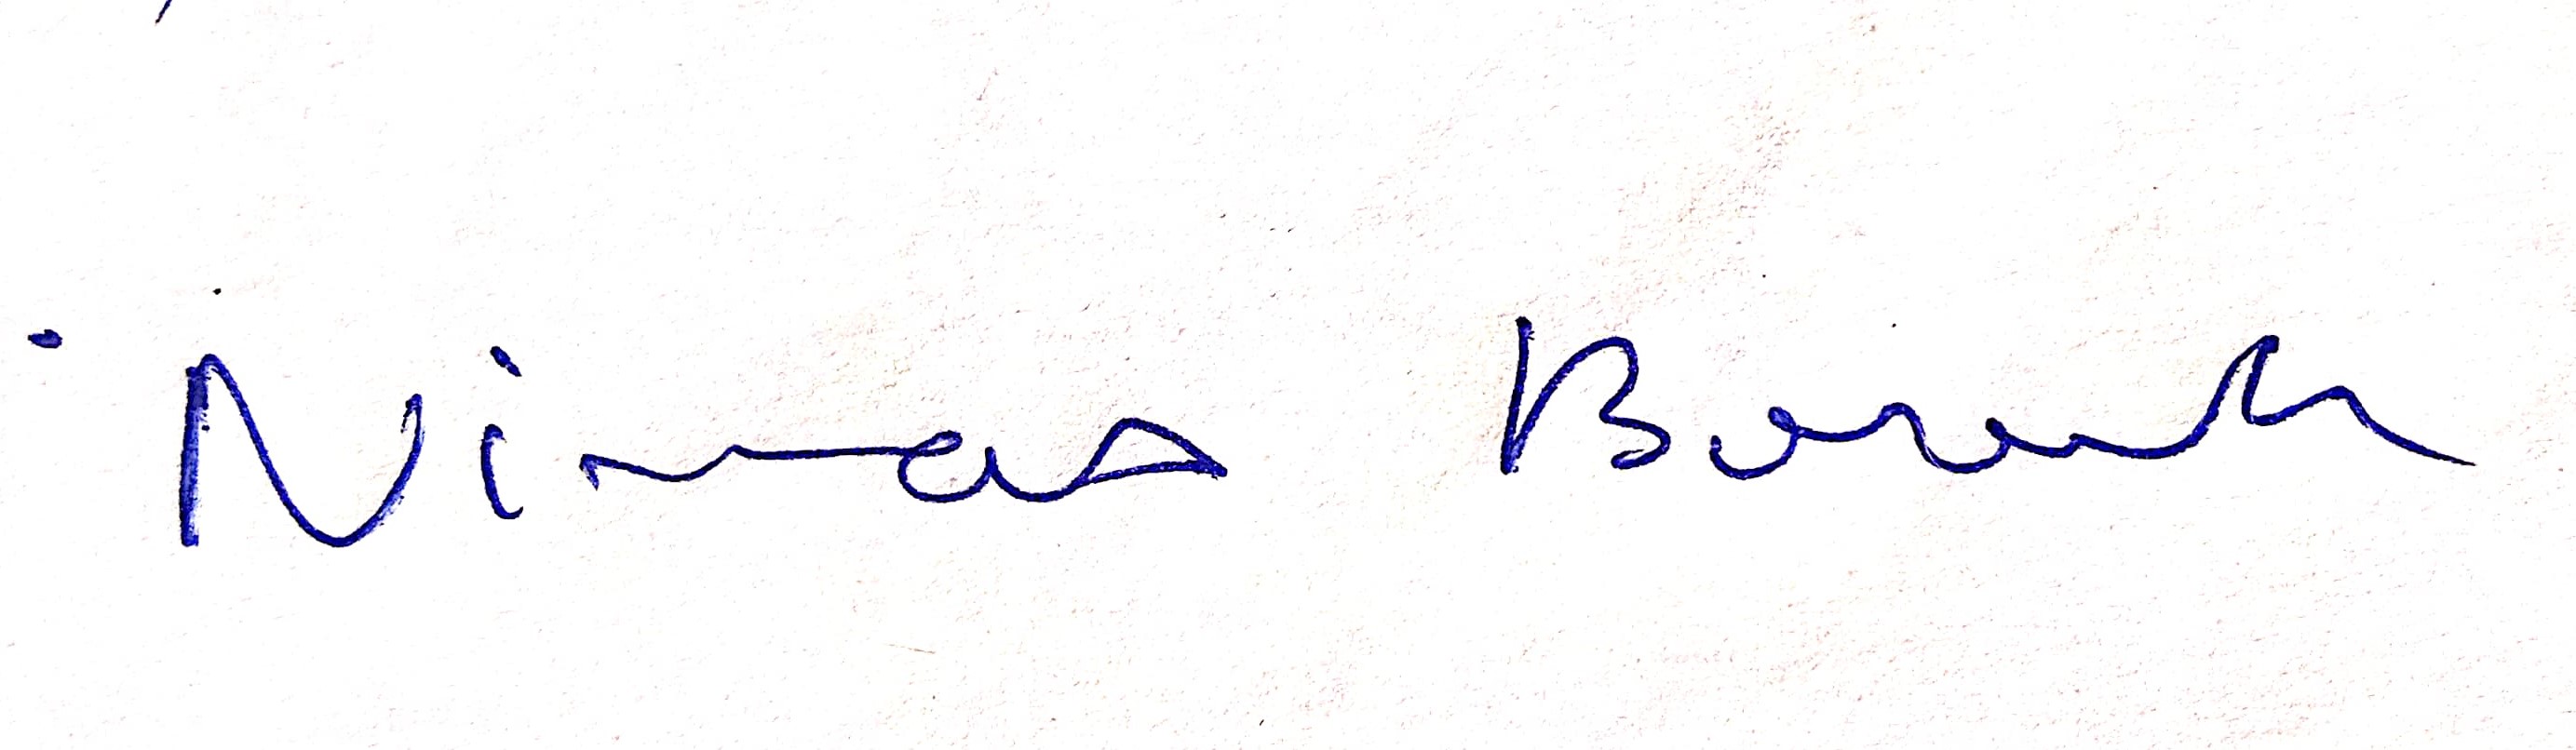 Nimas Borah